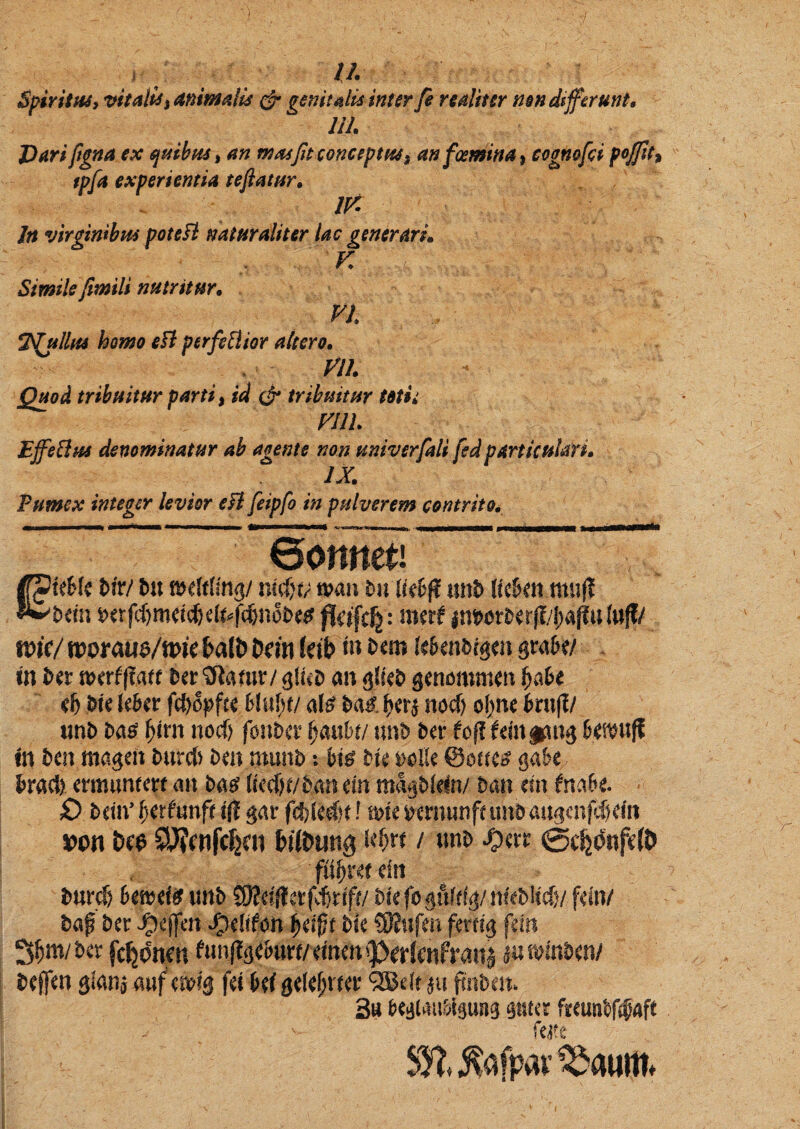 II.
Spiritus, vitalis, animalis & genitalis inter se realiter non differunt.
III.
Dari signa ex quibus, an mas sit conceptus, an fœmina, cognosci possit,
ipsa experientia testatur.
IV.
In virginibus potest naturaliter lac generari.
V.
Simile simili nutritur.
VI.
Nullus homo est perfectior altero.
VII.
Quod tribuitur parti, id & tribuitur toti.
VIII.
Effectus denominatur ab agente non universali sed particulari.
IX.
Pumex integer levior est seipso in pulverem contrito.
Sonnet!
Lieble dir/ du weltling/ nicht/ wan du liebst und lieben must
dein verschmeichelt-schnödes fleisch: merk zuvorderst/hastu lust/
wie/ woraus/wie bald dein leib in dem lebendigen grabe/
in der werkstatt der Natur/ glied an glied genommen habe
eh die leber schöpfte bluht/ als das herz noch ohne brust/
und das hirn noch sonder haubt/ und der kost kein gang bewust
in den magen durch den mund: bis die volle Gottes gabe
brach ermuntert an das liecht/dan ein mägdlein/ dan ein knabe.
O dein' herkunft ist gar schlecht! wie vernunft und augenschein
von des Menschen bildung lehrt / und Herr Schönfeld
führet ein
durch beweis und Meisterschrift/ die so gültig/ niedlich/ sein/
daß der Hessen Helikon heißt die Musen fertig sein
Ihm/ der schönen kunstgeburt/ einen Perlenkranz zu winden/
dessen glanz auf ewig sei bei gelehrter Welt zu finden.
Zu beglaubigung guter freundschaft
sezte
M. Kaspar Baum.